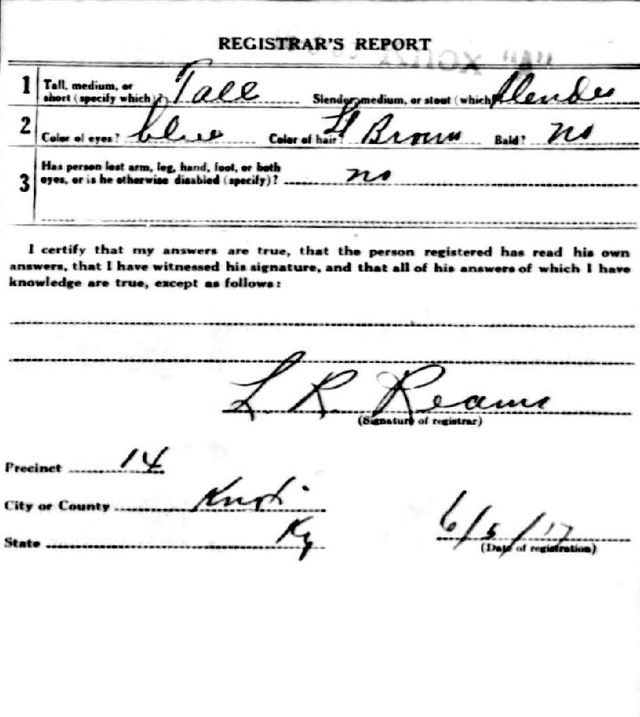 REGISTRAR'S REPORT
1 Tall, medium, or short (specify which)? Tall Slender, medium, or stout (which)? Slender
2 Color of eyes? blue Color of hair? Lt Brown Bald? no
3 Has person lost arm, leg, hand, foot, or both
eyes, or is he otherwise disabled (specify)? no
I certify that my answers are true, that the person registered has read his own
answers, that I have witnessed his signature, and that all of his answers of which I have
knowledge are true, except as follows:
L R Reams
(Signature of registrar)
Precinct 14
City or County
State Ky 6/5/17
(Date of registration)